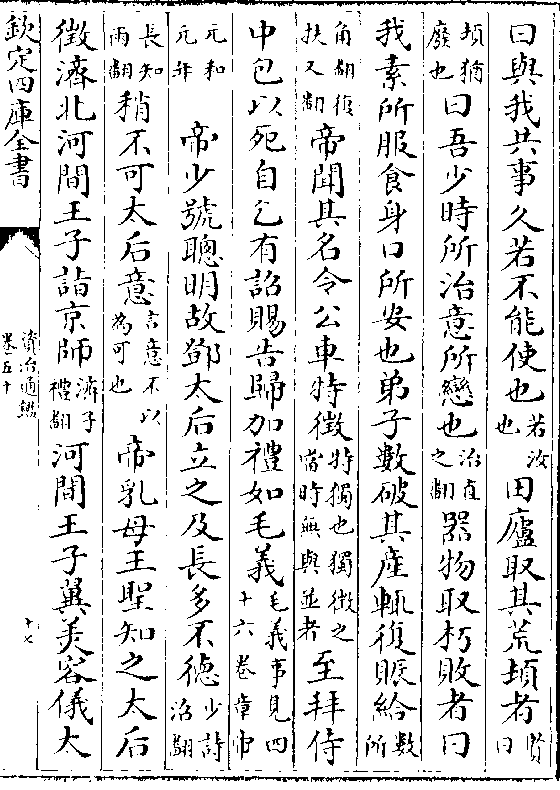 曰與我共事久若不能使也若汝也田廬取其荒頓者賢曰
頓猶廢也曰吾少時所治意所戀也治直之翻器物取朽敗者曰
我素所服食身口所安也弟子數破其產輒復賑給數所
角翻復扶又翻帝聞其名令公車特徵特獨也獨徵之當時無與並者至拜侍
中包以死自乞有詔賜告歸加禮如毛義毛義事見四十六卷章帝
元和元年帝少號聰明故鄧太后立之及長多不德少詩沼翻
長知兩翻稍不可太后意言意不以為可也帝乳母王聖知之太后
徵濟北河間王子詣京師濟子禮翻河間王子翼美容儀太
欽定四庫全書
資治通鑑
卷五十
十七